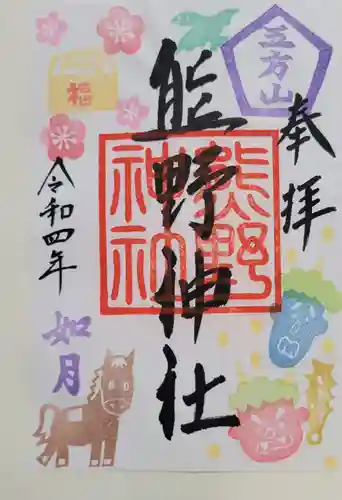 三方山
奉拝
熊野神社
熊野
神社
福
令和四年
如月